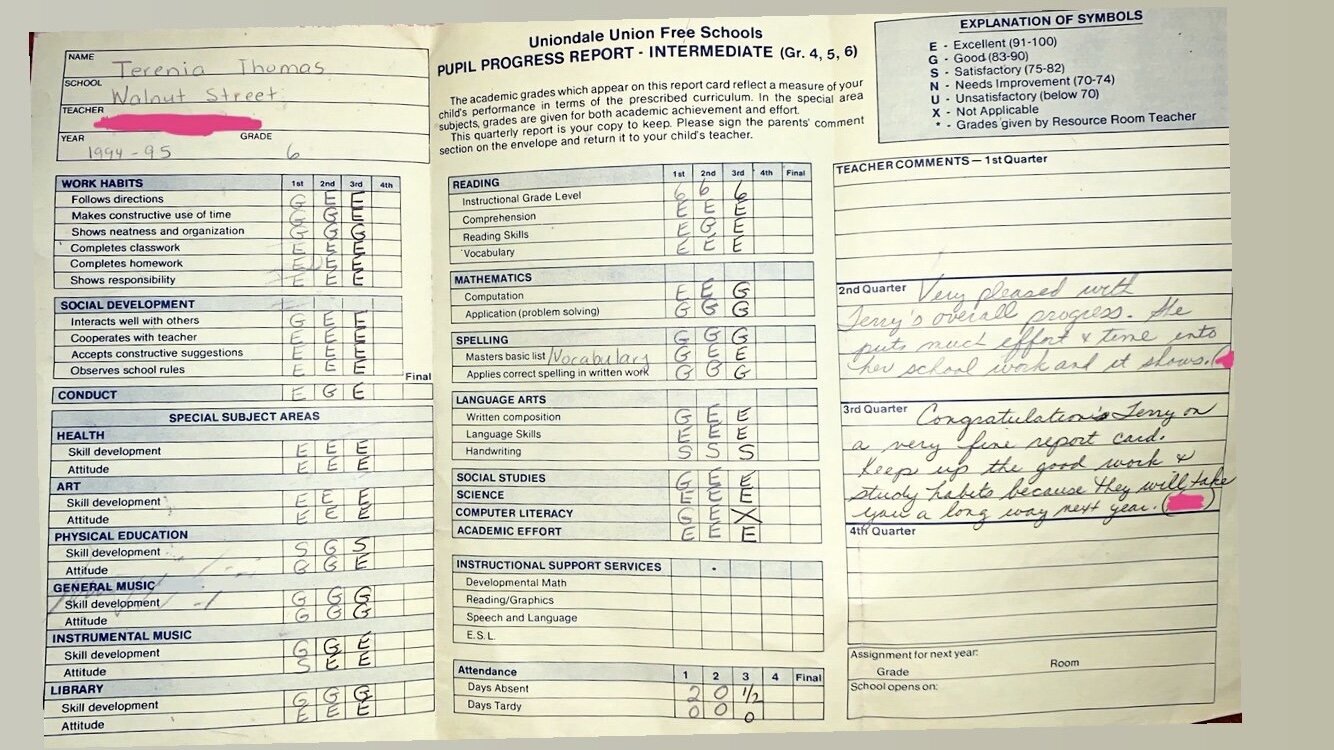 NAME Terenia Thomas
SCHOOL Walnut Street
TEACHER
YEAR GRADE
1994-95 6
WORK HABITS 1st 2nd 3rd 4th
Follows directions G E E
Makes constructive use of time G G E
Shows neatness and organization G G G
Completes classwork E E E
Completes homework E E E
Shows responsibility E E E
SOCIAL DEVELOPMENT
Interacts well with others G E E
Cooperates with teacher E E E
Accepts constructive suggestions E E E
Observes school rules E E E
Final
CONDUCT E G E
SPECIAL SUBJECT AREAS
HEALTH
Skill development E E E
Attitude E E E
ART
Skill development E E E
Attitude E E E
PHYSICAL EDUCATION
Skill development S G S
Attitude G G E
GENERAL MUSIC
Skill development G G G
Attitude G G G
INSTRUMENTAL MUSIC
Skill development G G E
Attitude S E E
LIBRARY
Skill development G G G
Attitude E E E
Uniondale Union Free Schools
PUPIL PROGRESS REPORT - INTERMEDIATE (Gr. 4, 5, 6)
The academic grades which appear on this report card reflect a measure of your
child's performance in terms of the prescribed curriculum. In the special area
subjects, grades are given for both academic achievement and effort.
This quarterly report is your copy to keep. Please sign the parents' comment
section on the envelope and return it to your child's teacher.
READING 1st 2nd 3rd 4th Final
Instructional Grade Level 6 6 6
Comprehension E E E
Reading Skills E G E
Vocabulary E E E
MATHEMATICS
Computation E E G
Application (problem solving) G G G
SPELLING G G G
Masters basic list/Vocabulary G E E
Applies correct spelling in written work G G G
LANGUAGE ARTS
Written composition G E E
Language Skills E E E
Handwriting S S S
SOCIAL STUDIES G E E
SCIENCE E E E
COMPUTER LITERACY G E X
ACADEMIC EFFORT E E E
INSTRUCTIONAL SUPPORT SERVICES
Developmental Math
Reading/Graphics
Speech and Language
E.S.L.
Attendance 1 2 3 4 Final
Days Absent 2 0 1/2
Days Tardy 0 0 0
EXPLANATION OF SYMBOLS
E - Excellent (91-100)
G - Good (83-90)
S - Satisfactory (75-82)
N - Needs Improvement (70-74)
U - Unsatisfactory (below 70)
X - Not Applicable
* - Grades given by Resource Room Teacher
TEACHER COMMENTS — 1st Quarter
2nd Quarter Very pleased with
Terry's overall progress. She
puts much effort & time into
her school work and it shows. (
3rd Quarter Congratulations Terry on
a very fine report card.
Keep up the good work &
study habits because they will take
you a long way next year. ( )
4th Quarter
Assignment for next year:
Grade Room
School opens on: